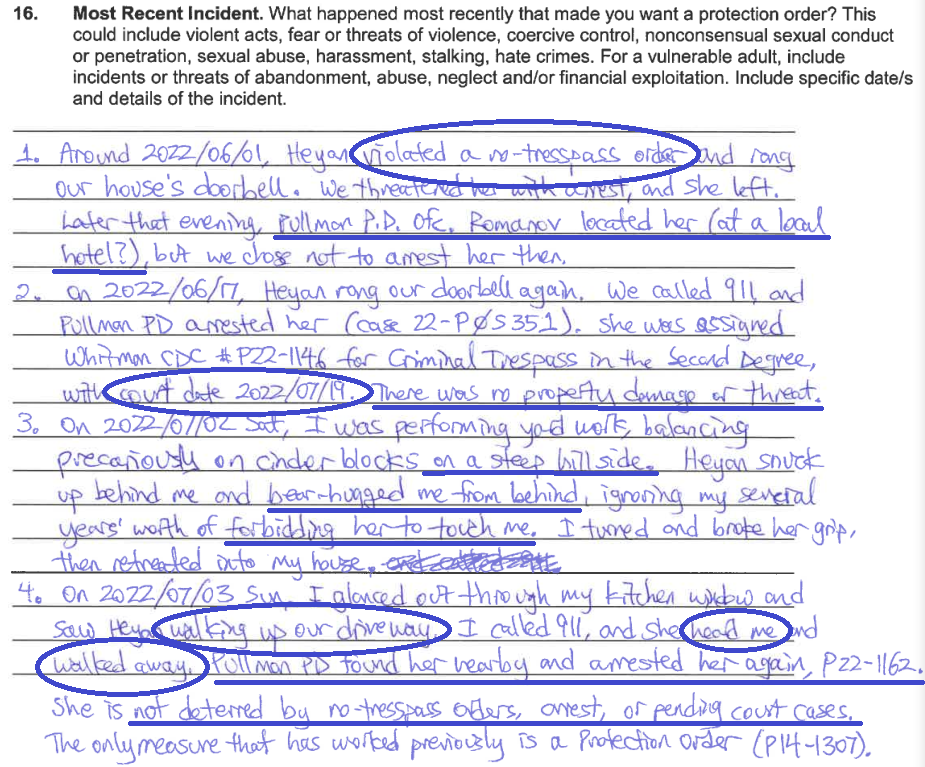 16. Most Recent Incident. What happened most recently that made you want a protection order? This
could include violent acts, fear or threats of violence, coercive control, nonconsensual sexual conduct
or penetration, sexual abuse, harassment, stalking, hate crimes. For a vulnerable adult, include
incidents or threats of abandonment, abuse, neglect and/or financial exploitation. Include specific date/s
and details of the incident.
1. Around 2022/06/01, Heyan violated a no-tresspass order and rang
our house's doorbell. We threatened her with arrest, and she left.
Later that evening, Pullman P.D. Ofc. Romanov located her (at a local
hotel?), but we chose not to arrest her then.
2. On 2022/06/17, Heyan rang our doorbell again. We called 911, and
Pullman PD arrested her (case 22-PØ5351). She was assigned
Whitman CDC #P22-1146 for Criminal Trespass in the Second Degree,
with court date 2022/07/19. There was no property damage or threat.
3. On 2022/07/02 Sat, I was performing yard work, balancing
precariously on cinder blocks on a steep hillside. Heyan snuck
up behind me and bear-hugged me from behind, ignoring my several
years' worth of forbidding her to touch me. I turned and broke her grip,
then retreated into my house.
4. On 2022/07/03 Sun, I glanced out through my kitchen window and
saw Heyan walking up our driveway. I called 911, and she heard me and
walked away. Pullman PD found her nearby and arrested her again, P22-1162.
She is not deterred by no-tresspass orders, arrest, or pending court cases.
The only measure that has worked previously is a Protection Order (P14-1307).